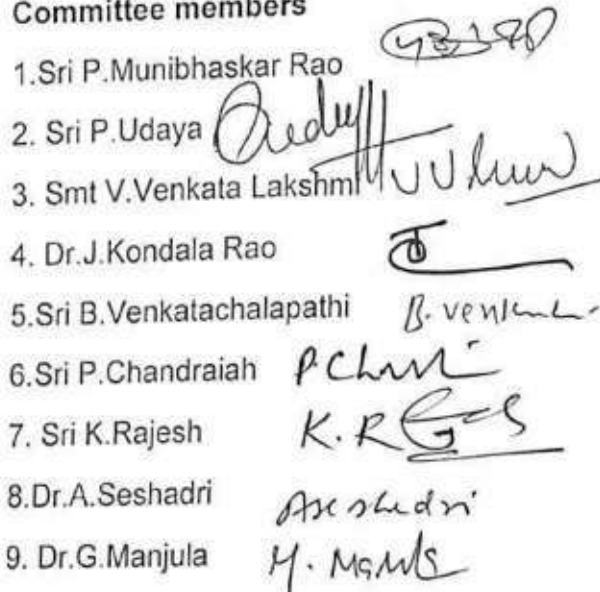 Committee members
1.Sri P.Munibhaskar Rao
2. Sri P.Udaya
3. Smt V.Venkata Lakshmi
4. Dr.J.Kondala Rao
5.Sri B.Venkatachalapathi
6.Sri P.Chandraiah
7. Sri K.Rajesh K.R
8.Dr.A.Seshadri Aseshadri
9. Dr.G.Manjula